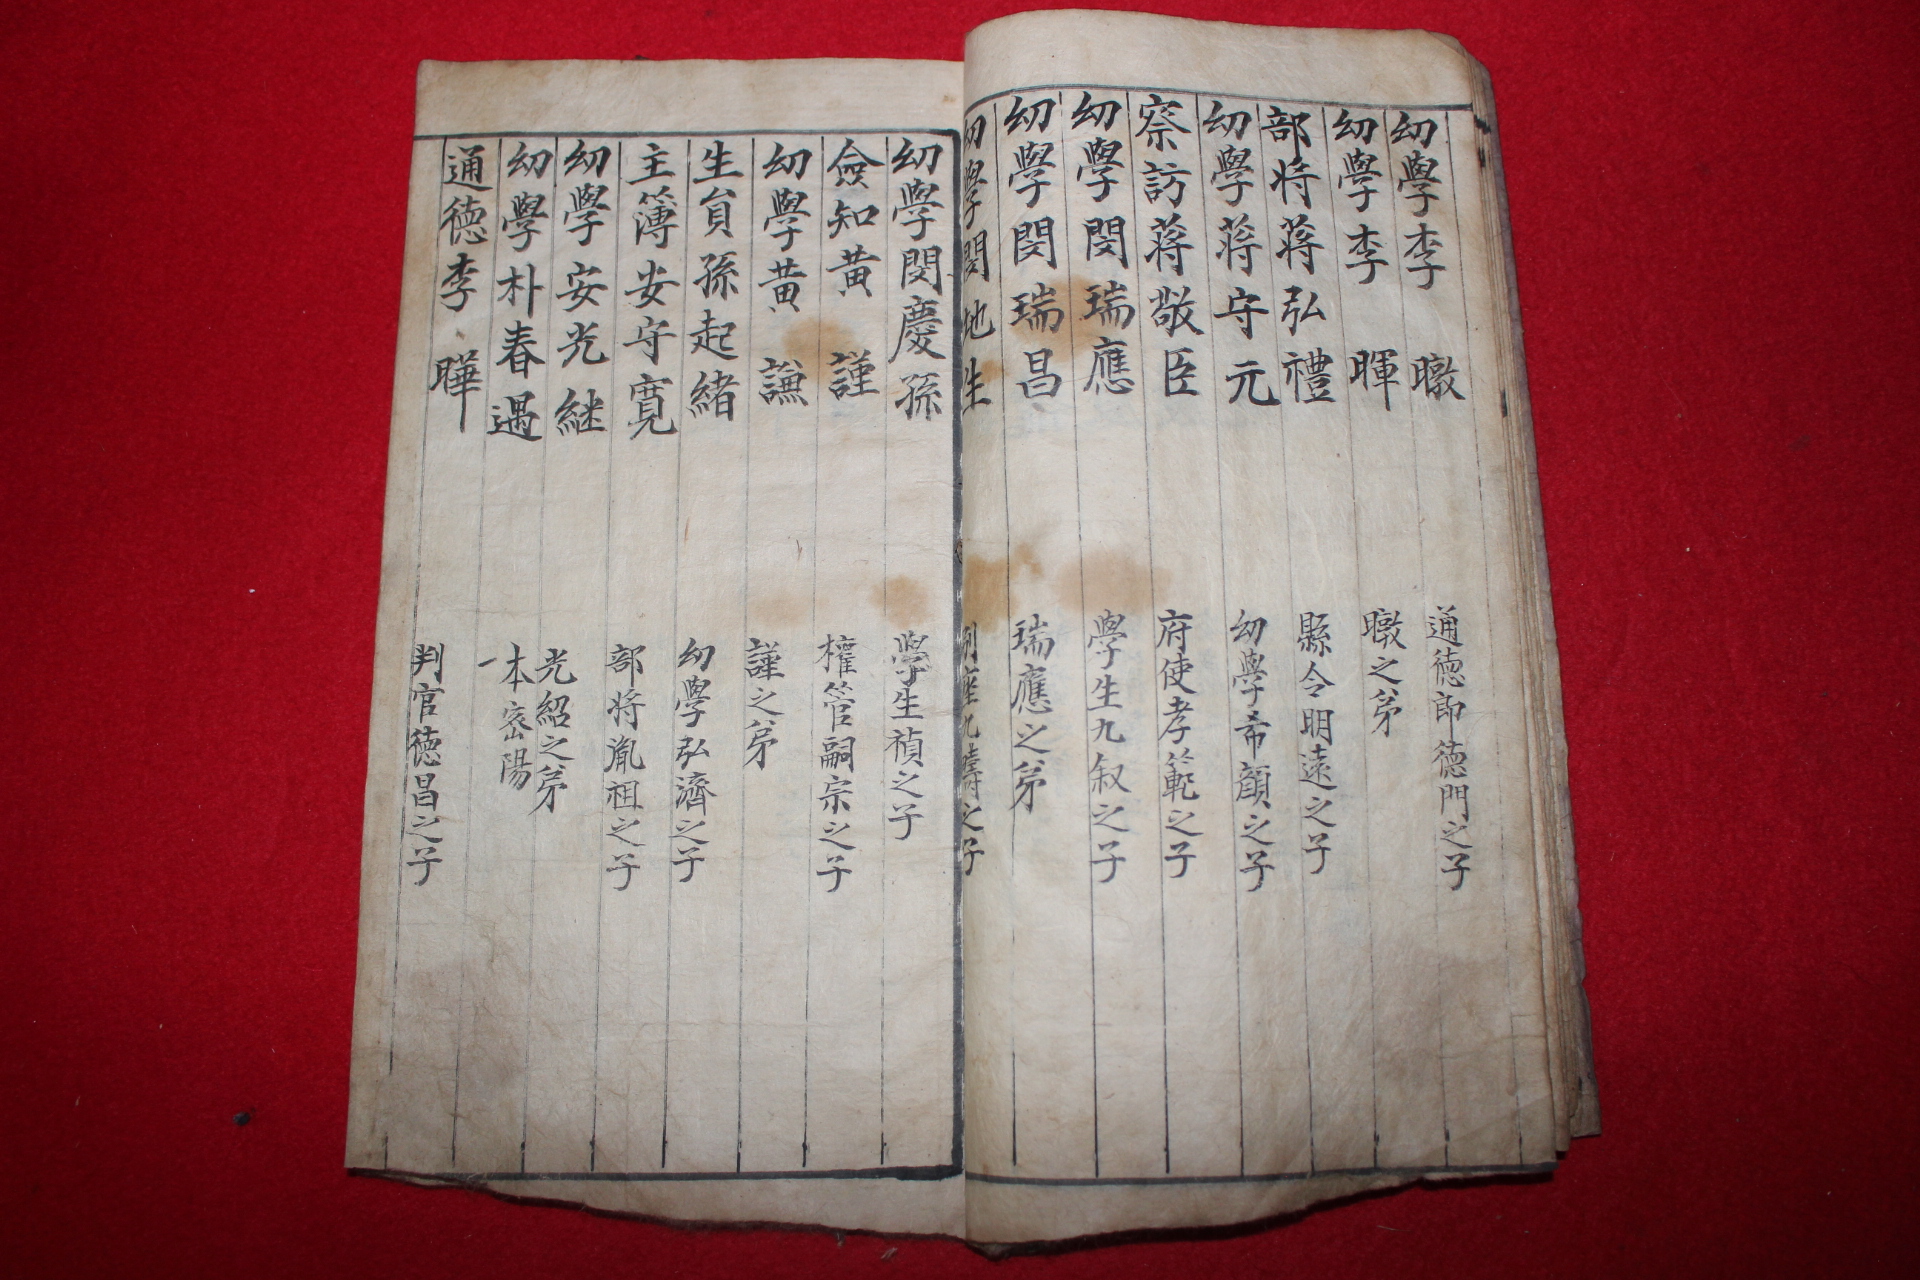 幼學李 暾 通德郎德門之子
幼學李 暉 暾之弟
部将蔣弘禮 縣令明遠之子
幼學蔣守元 幼學希顔之子
察訪蔣敬臣 府使孝範之子
幼學閔瑞應 學生九叙之子
幼學閔瑞昌 瑞應之弟
幼學閔地生 九疇之子
幼學閔慶孫 學生禎之子
僉知黃 謹 權管嗣宗之子
幼學黃 謙 謹之弟
生員孫起緒 幼學弘濟之子
主簿安守寬 部将胤祖之子
幼學安光継 光紹之弟
幼學朴春遇 一本密陽
通德李 曄 判官德昌之子